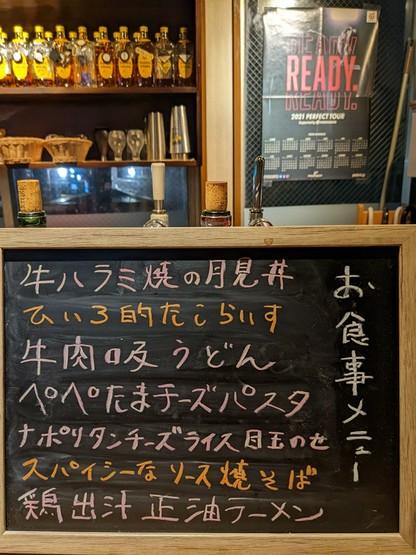 READY.
READY.
READY.
2021 PERFECT TOUR
お食事メニュー
牛ハラミ焼の月見丼
ひいろ的たこらいす
牛肉吸うどん
ペペたまチーズパスタ
ナポリタンチーズライス目玉のせ
スパイシーなソース焼そば
鶏出汁正油ラーメン